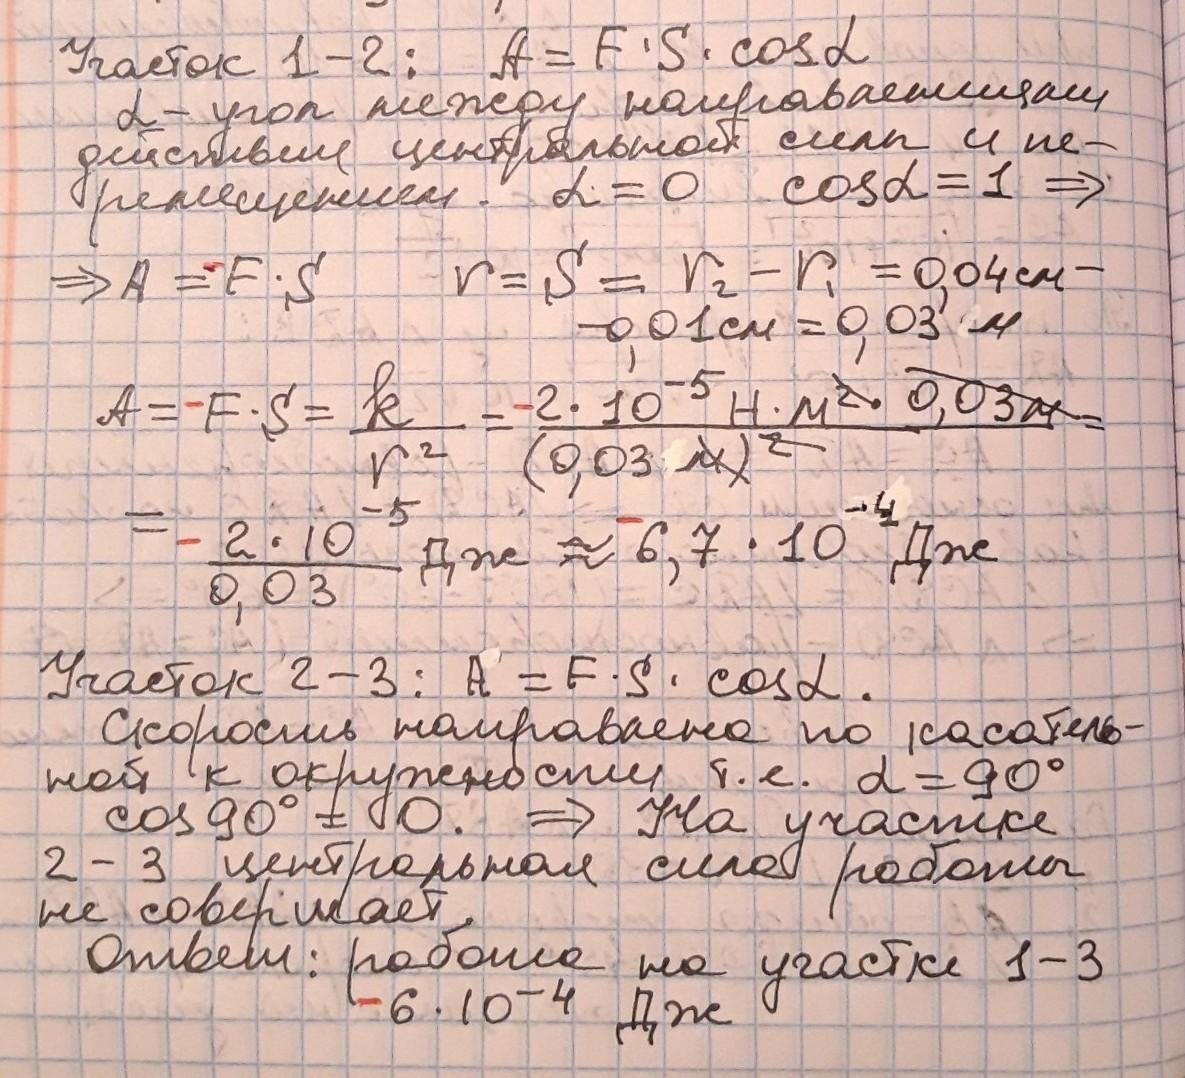 Участок 1-2: A = F·S·cosα
α - угол между направлениями
действия центральной силы и пе-
ремещением. α = 0 cosα = 1 ⇒
⇒ A = -F·S r = S = r₂ - r₁ = 0,04см -
-0,01см = 0,03 м
A = -F·S = k/r² = -2·10⁻⁵ Н·м²·0,03м/(0,03 м)² =
= -2·10⁻⁵/0,03 Дж ≈ -6,7·10⁻⁴ Дж
Участок 2-3: A = F·S·cosα.
Скорость направлена по касатель-
ной к окружности т.е. α = 90°
cos90° = 0. ⇒ На участке
2-3 центральная сила работы
не совершает.
Ответ: работа на участке 1-3
-6·10⁻⁴ Дж